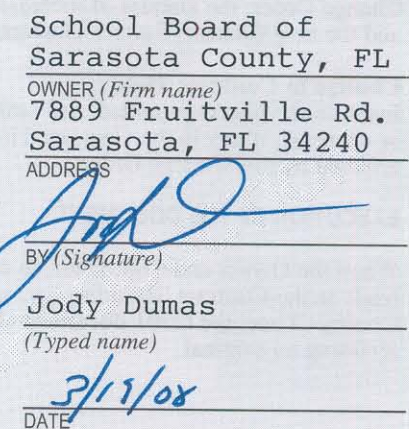 School Board of
Sarasota County, FL
OWNER (Firm name)
7889 Fruitville Rd.
Sarasota, FL 34240
ADDRESS
BY (Signature)
Jody Dumas
(Typed name)
3/19/08
DATE